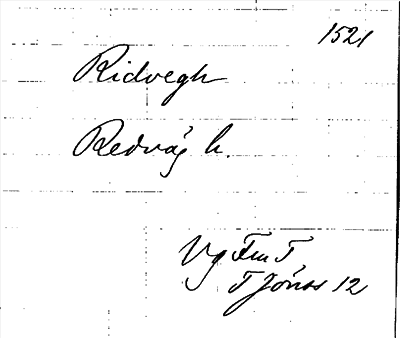 1521
Ridvegh
Redväg h.
Vg Fm T
T Jönss 12